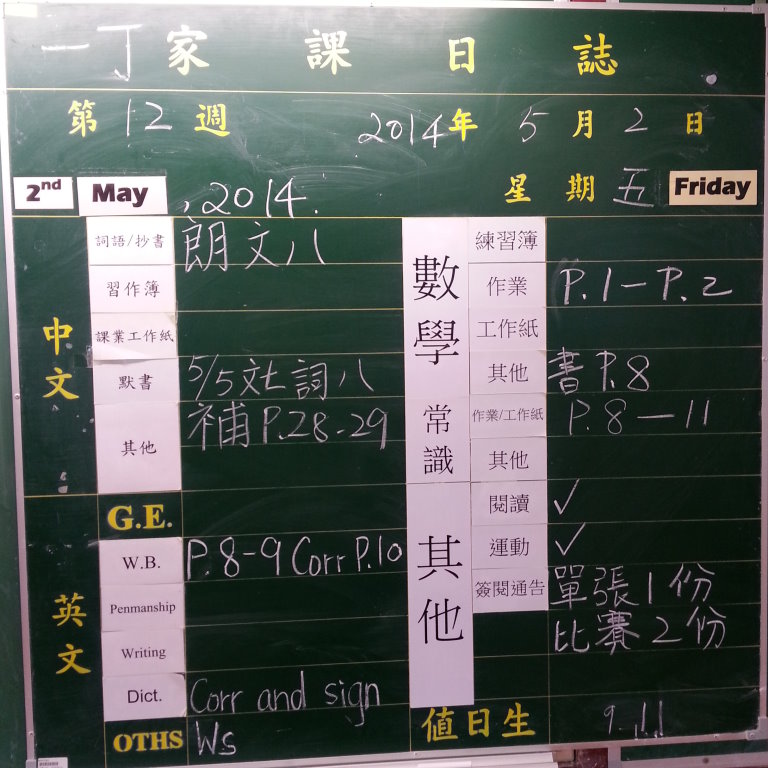 一丁家課日誌
第12週 2014年5月2日
星期五 Friday
2nd May, 2014.
中文
詞語/抄書 朗文八
習作簿
課業工作紙
默書 5/5 詞八
其他 補P.28-29
英文
G.E.
W.B. P.8-9 Corr P.10
Penmanship
Writing
Dict. Corr and sign
OTHS Ws
數學
練習簿
作業 P.1-P.2
工作紙
其他 書P.8
常識
作業/工作紙 P.8-11
其他
其他
閱讀 ✓
運動 ✓
簽閱通告 單張1份
比賽2份
值日生 9 11